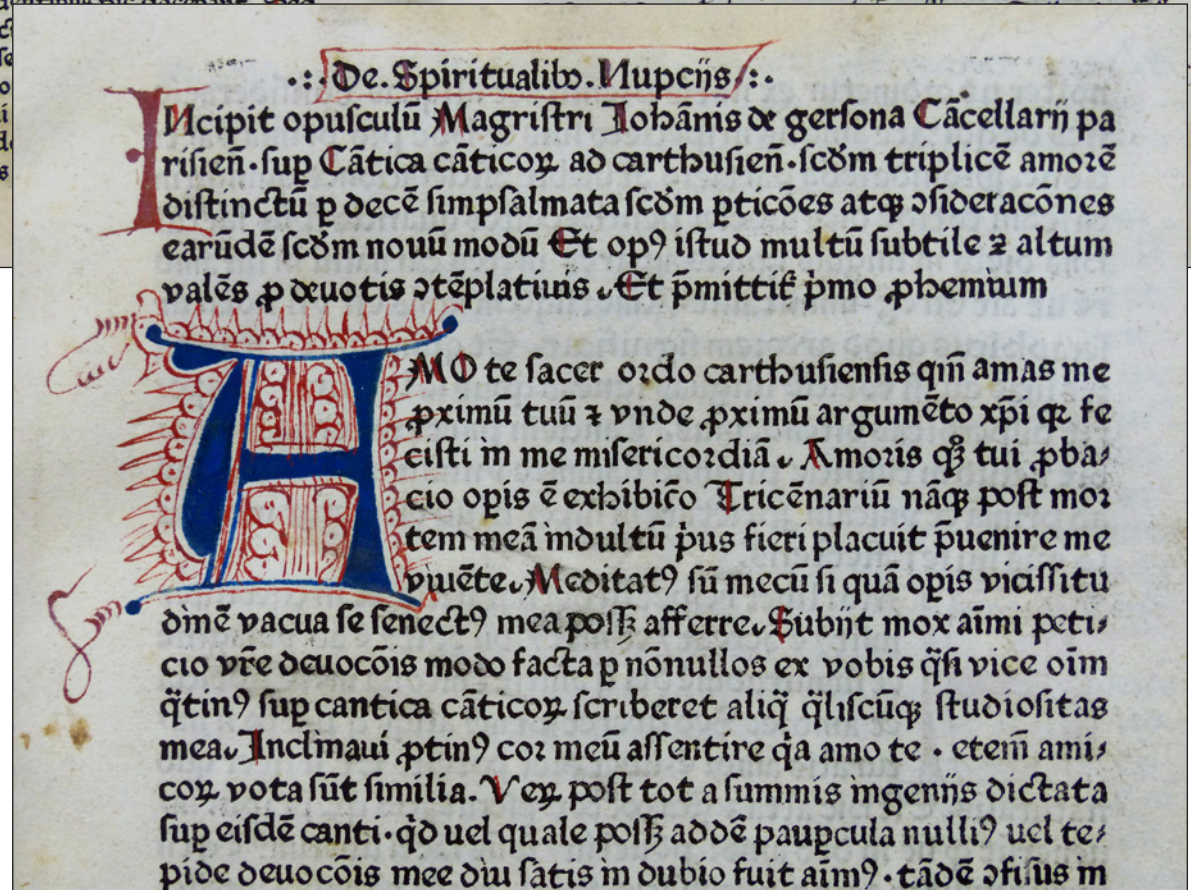 .:De.Spiritualibꝰ.Nupcijs:.
INcipit opusculū Magristri Johānis de gersona Cācellarij pa
risieñ·suꝑ Cātica cāticoꝝ ad carthusieñ·scd̄m triplicē amorē
distinctū ꝑ decē simpsalmata scd̄m ꝑticōes atqꝫ ꝯsideracōnes
earūdē scd̄m nouū modū Et opꝰ istud multū subtile ⁊ altum
valēs ꝓ deuotis ꝯtēplatiuis . Et p̄mittit᷑ pͥmo ꝓhemium
AMO te sacer ordo carthusiensis qm̄ amas me
ꝓximū tuū ⁊ vnde ꝓximū argumēto xp̄i qꝛ fe
cisti in me misericordiā . Amoris qꝫ tui ꝓba⸗
cio oꝑis ē exhibic̄o Tricēnariū nāqꝫ post mor
tem meā indultū pͥus fieri placuit p̄uenire me
viuēte. Meditatꝰ sū mecū si quā oꝑis vicissitu
dinē vacua se senectꝰ mea possꝫ afferre. Subijt mox aīmi peti⸗
cio vr̄e deuocōis modo facta ꝑ nōnullos ex vobis q̄si vice oīm
q̄tinꝰ suꝑ cantica cāticoꝝ scriberet aliq̄ q̄liscūqꝫ studiositas
mea. Inclinaui ꝓtinꝰ cor meū assentire qͥa amo te · etem̄ ami⸗
coꝝ vota sūt similia. Veꝝ post tot a summis ingenijs dictata
suꝑ eisdē canti·qͥd uel quale possꝫ addē pauꝑcula nulliꝰ uel te⸗
pide deuocōis mee diu satis in dubio fuit aīmꝰ·tādē ꝯfisus in